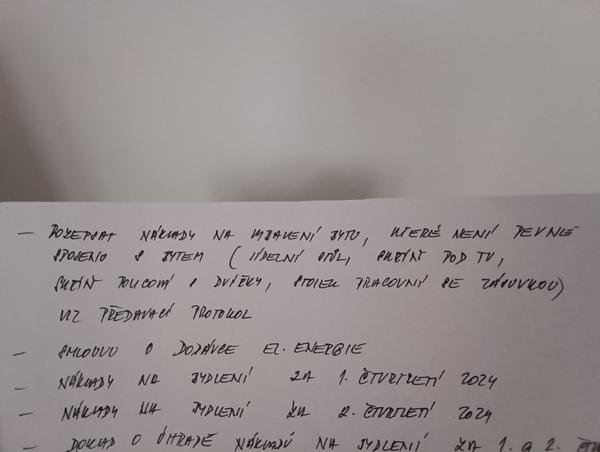 – ROZEPSAT NÁKLADY NA VYBAVENÍ BYTU, KTERÉ NENÍ PEVNĚ
SPOJENO S BYTEM (JÍDELNÍ STŮL, SKŘÍŇ POD TV,
SKŘÍŇ POLICOVÁ S DVÍŘKY, STOLEK PRACOVNÍ SE ZÁSUVKOU)
VIZ PŘEDÁVACÍ PROTOKOL
– SMLOUVU O DODÁVCE EL. ENERGIE
– NÁKLADY NA BYDLENÍ ZA 1. ČTVRTLETÍ 2024
– NÁKLADY NA BYDLENÍ ZA 2. ČTVRTLETÍ 2024
– DOKLAD O ÚHRADĚ NÁKLADŮ NA BYDLENÍ ZA 1. A 2.